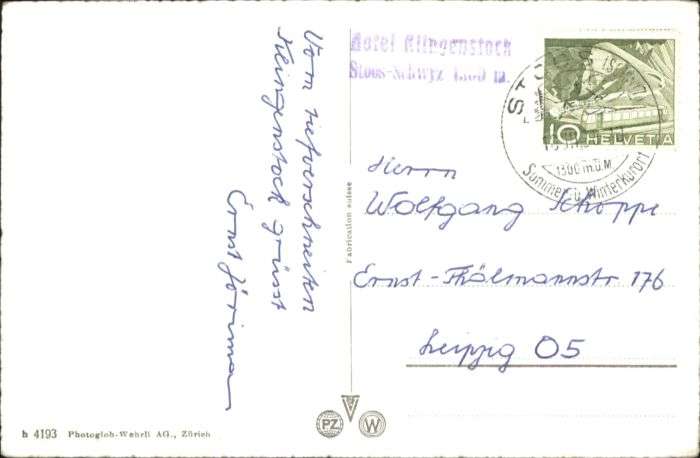 Vom tiefverschneiten
Klingenstock grüsst
Ernst
Hotel Klingenstock
Stoos-Schwyz 1300 m.
10 HELVETIA
1300 m.ü.M
Sommer- u. Winterkurort
Herrn
Wolfgang Schoppe
Ernst-Thälmannstr 176
Leipzig 05
Fabrication suisse
PZ
W
h 4193 Photoglob-Wehrli AG., Zürich